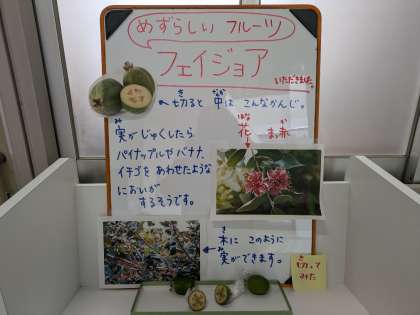 めずらしい フルーツ
フェイジョア
いただきました。
き なか
切ると 中は こんなかんじ。
み
実がじゅくしたら
パイナップルやバナナ、
イチゴを あわせたような
においが
するそうです。
はな か
花 ま赤
き
木に このように
み
実ができます。
き
切って
みた